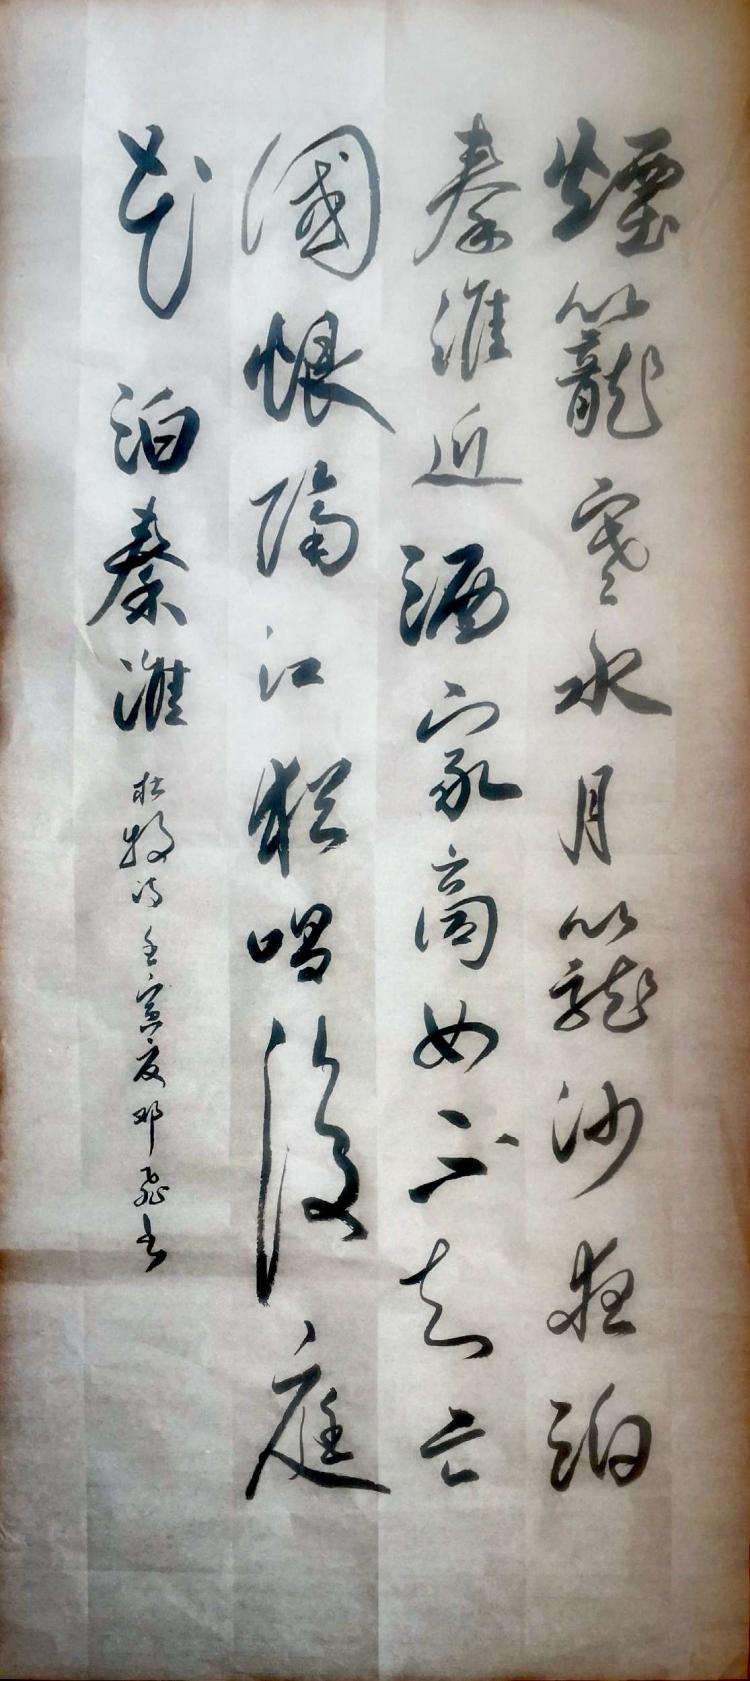 煙籠寒水月籠沙夜泊
秦淮近酒家商女不知亡
國恨隔江猶唱後庭
花 泊秦淮 杜牧詩 壬寅夏 邓飛书